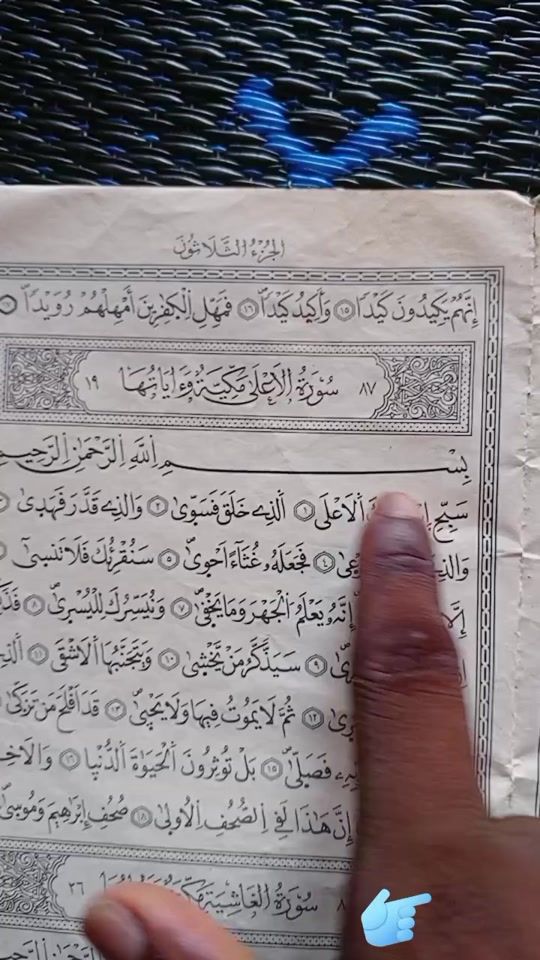 الجزء الثلاثون
إِنَّهُمْ يَكِيدُونَ كَيْدًا ١٥ وَأَكِيدُ كَيْدًا ١٦ فَمَهِّلِ اِلْكٰفِرِينَ أَمْهِلْهُمْ رُوَيْدًا
٨٧ سُورَةُ اُلَاعْلَىٰ مَكِّيَّةٌ وَءَايَاتُهَا ١٩
بِسْمِ اِللَّهِ اِلرَّحْمَٰنِ اِلرَّحِيمِ
سَبِّحِ اَلَاعْلَى ١ اَلذِے خَلَقَ فَسَوّ۪ىٰ ٢ وَالذِے قَدَّرَ فَهَد۪ىٰ
٤ فَجَعَلَهُۥ غُثَآءً اَحْو۪ىٰ ٥ سَنُقْرِئُكَ فَلَا تَنس۪ىٰ
إِنَّهُۥ يَعْلَمُ اُلْجَهْرَ وَمَا يَخْف۪ىٰ ٧ وَنُيَسِّرُكَ لِلْيُسْر۪ىٰ ٨
٩ سَيَذَّكَّرُ مَنْ يَّخْش۪ىٰ ١٠ وَيَتَجَنَّبُهَا اَلَاشْقَى ١١
١٢ ثُمَّ لَا يَمُوتُ فِيهَا وَلَا يَحْي۪ىٰ ١٣ قَدَ اَفْلَحَ مَن تَزَكّ۪ىٰ
فَصَلّ۪ىٰ ١٥ بَلْ تُوثِرُونَ اَلْحَيَوٰةَ اَلدُّنْيَا ١٦
إِنَّ هَٰذَا لَفِے اِلصُّحُفِ اِلُاول۪ىٰ ١٨ صُحُفِ إِبْرَٰهِيمَ وَمُوس۪ىٰ
سُورَةُ اُلْغَاشِيَةِ ٢٦